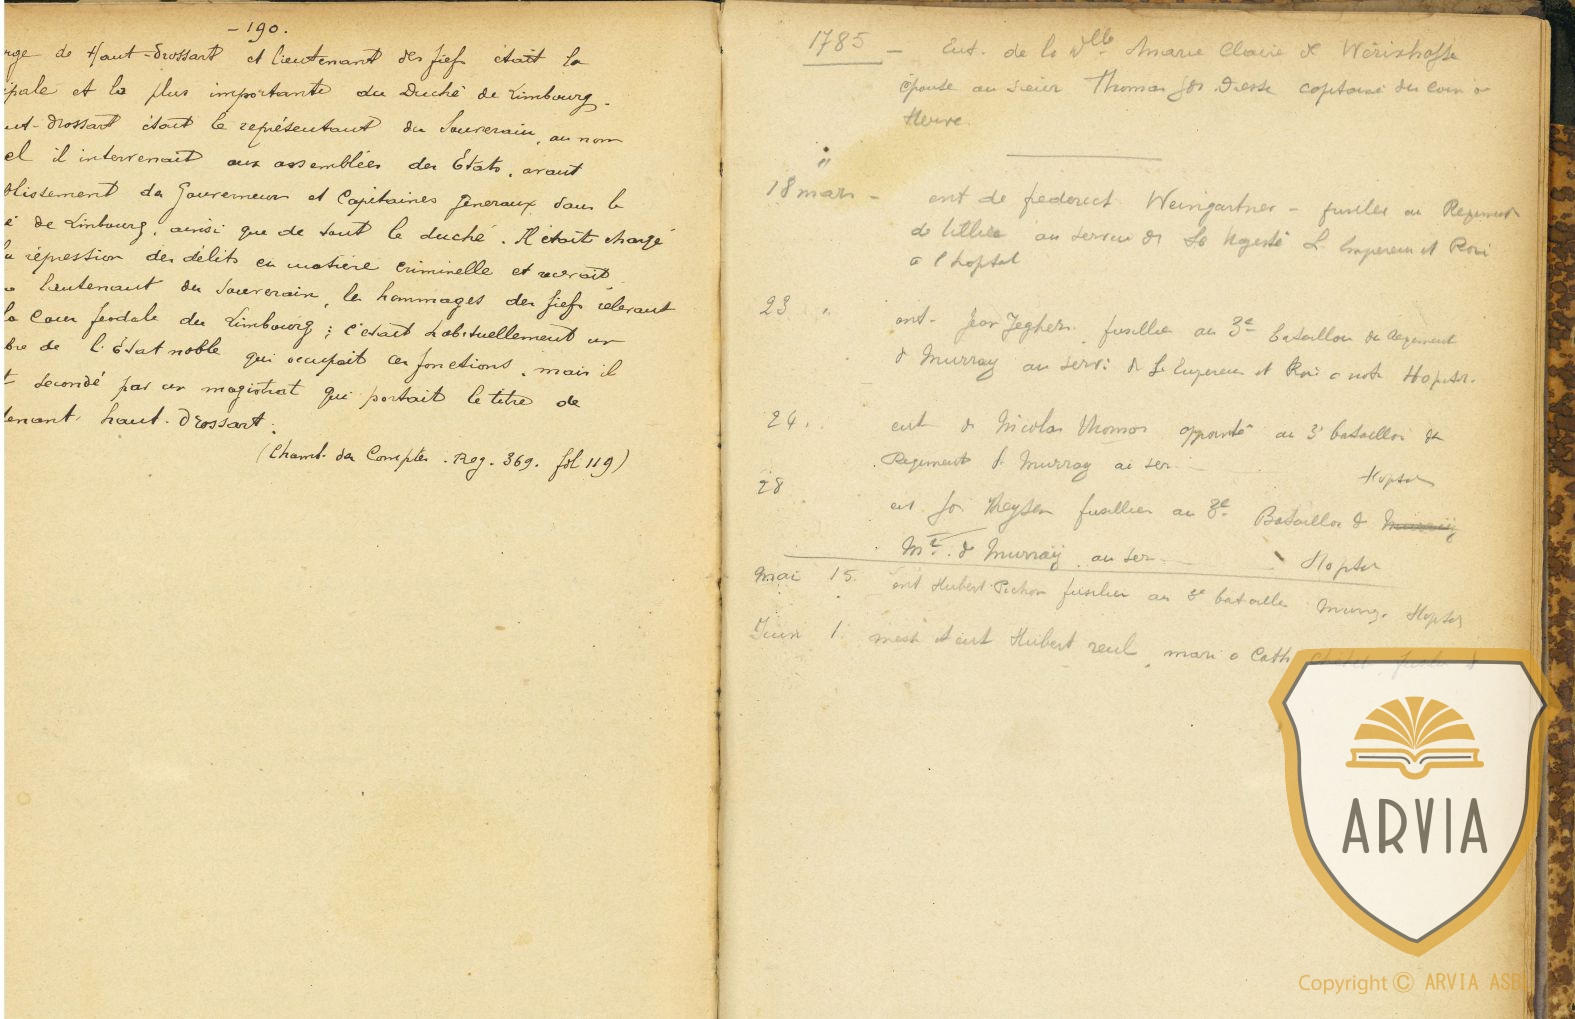 - 190.
rge de Haut-Drossart et lieutenant des fiefs était la
ipale et la plus importante du Duché de Limbourg.
ut-Drossart était le représentant du Souverain, au nom
el il intervenait aux assemblées des Etats, avant
blissement de Gouverneurs et Capitaines généraux dans le
é de Limbourg, ainsi que de tout le duché. Il était chargé
la répression des délits en matière criminelle et recevait
lieutenant du Souverain, les hommages des fiefs relevant
la Cour féodale du Limbourg ; c'était habituellement un
bre de l'Etat noble qui occupait ces fonctions, mais il
t secondé par un magistrat qui portait le titre de
tenant haut-Drossart.
(Chamb. des Comptes. Reg. 369. fol 119)
1785 - Ent. de la Dlle Marie Claire de
épouse au sieur Thomas Jos. capitaine du
Herve.
"
18 mars - ent de Weingartner - fusilier au Regiment
de au service de Sa Majesté L'Empereur et Roi
a l'hopital
23 " ent. Jean Jeghers fusillier au 3e bataillon du Regiment
d Murray au servi: de L'Empereur et Roi a notre Hopital.
24. ent de Nicolas Thomas appointé au 3e bataillon du
Regiment d. Murray au ser. Hopital
28 ent Jos Theysen fusillier au 3e Bataillon d Murray
Mr. d Murraÿ au ser. Hopital
Mai 15. ent Hubert Pichon fusilier au 3e bataillon Murray. Hopital
Juin 1. messe et ent Hubert reul, mari a Cath
ARVIA
Copyright © ARVIA ASB